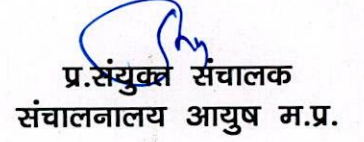 प्र.संयुक्त संचालक
संचालनालय आयुष म.प्र.